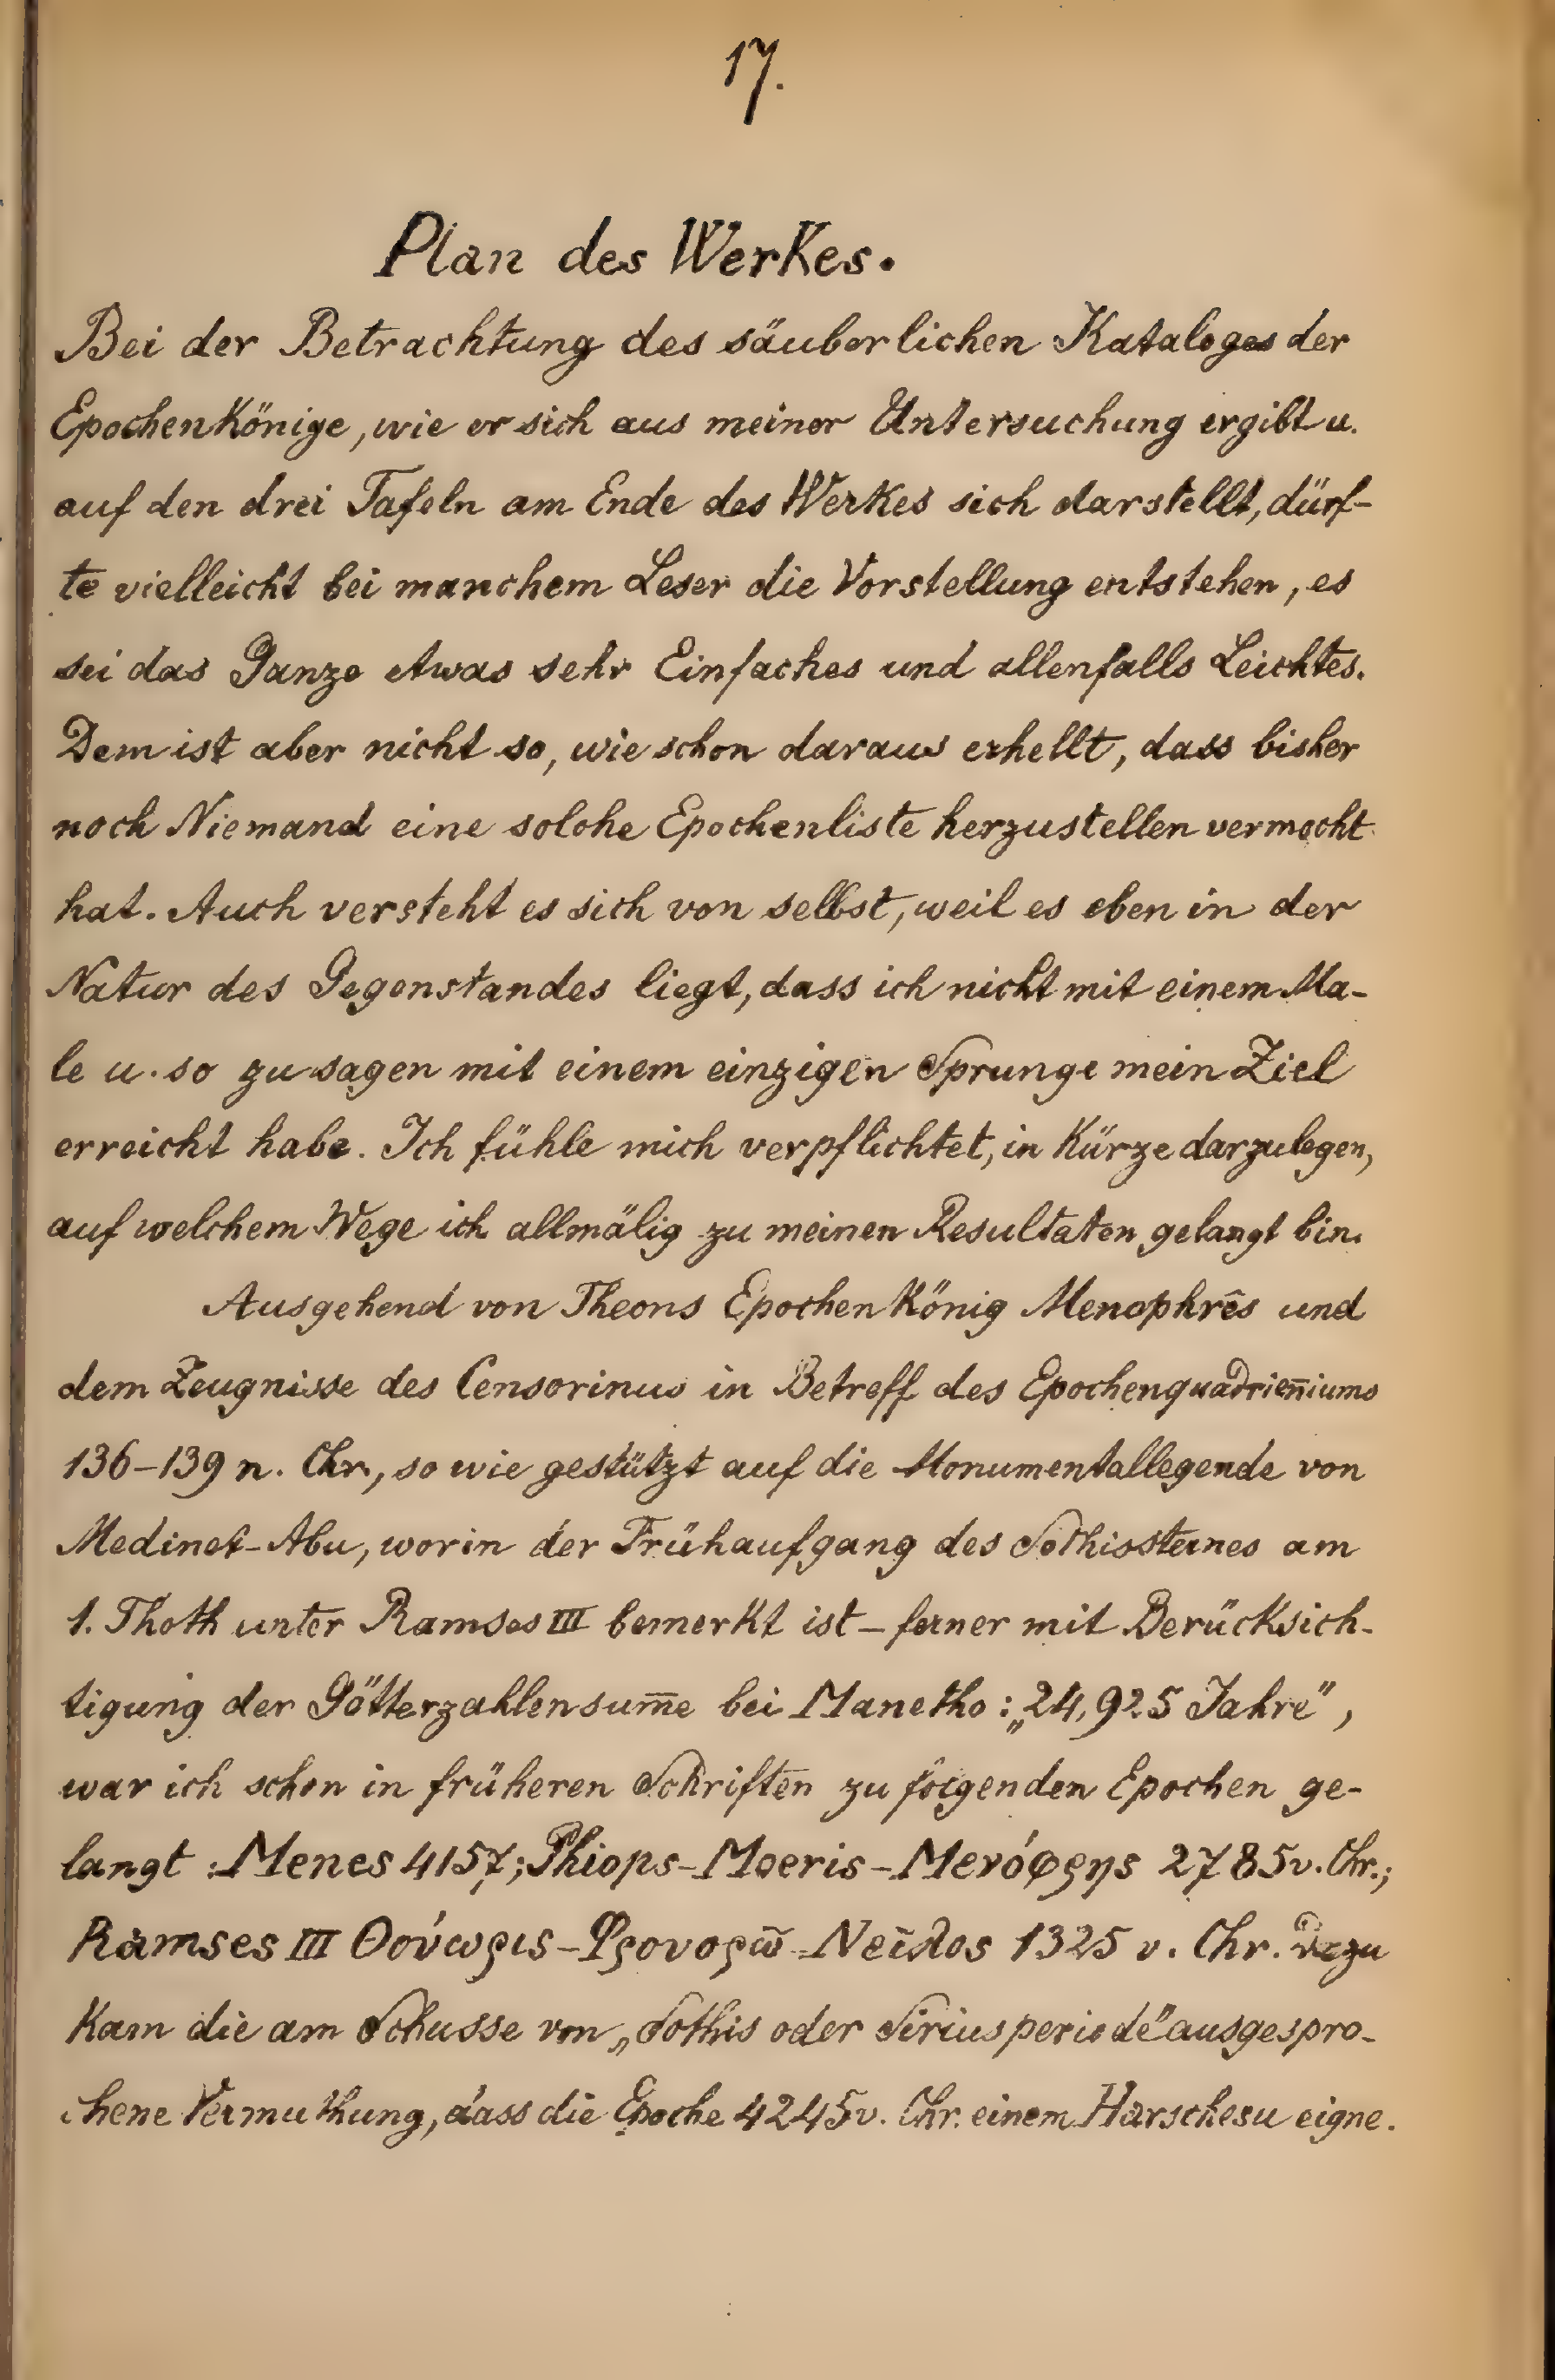 17.
Plan des Werkes.
Bei der Betrachtung des säuberlichen Kataloges der
Epochenkönige, wie er sich aus meiner Untersuchung ergibt u.
auf den drei Tafeln am Ende des Werkes sich darstellt, dürf-
te vielleicht bei manchem Leser die Vorstellung entstehen, es
sei das Ganze etwas sehr Einfaches und allenfalls Leichtes.
Dem ist aber nicht so, wie schon daraus erhellt, dass bisher
noch Niemand eine solche Epochenliste herzustellen vermocht
hat. Auch versteht es sich von selbst, weil es eben in der
Natur des Gegenstandes liegt, dass ich nicht mit einem Ma-
le u. so zu sagen mit einem einzigen Sprunge mein Ziel
erreicht habe. Ich fühle mich verpflichtet, in Kürze darzulegen,
auf welchem Wege ich allmälig zu meinen Resultaten gelangt bin.
Ausgehend von Theons Epochenkönig Menophrēs und
dem Zeugnisse des Censorinus in Betreff des Epochenquadrien̄iums
136–139 n. Chr., so wie gestützt auf die Monumentallegende von
Medinet-Abu, worin der Frühaufgang des Sothissternes am
1. Thoth unter Ramses III bemerkt ist – ferner mit Berücksich-
tigung der Götterzahlensum̄e bei Manetho: „24,925 Jahre",
war ich schon in früheren Schriften zu folgenden Epochen ge-
langt: Menes 4157; Phiops-Moeris-Μενόφρης 2785 v. Chr.;
Ramses III Θούωρις-Φρουορῶ-Νεῖλος 1325 v. Chr. Dazu
kam die am Schusse von „Sothis oder Siriusperiode" ausgespro-
chene Vermuthung, dass die Epoche 4245 v. Chr. einem Harschesu eigne.